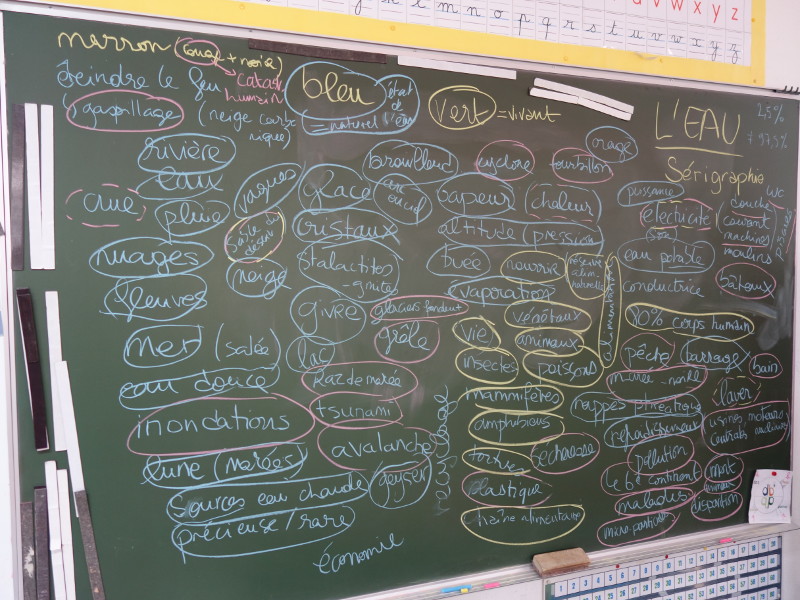 marron (rouge + noire)
éteindre le feu
gaspillage
humain
bleu
= naturel
état
de
l'eau
vert = vivant
L'EAU
Sérigraphie
2,5%
97,5%
rivière
eaux
crue
pluie
nuages
fleuves
mer (salée)
eau douce
inondations
lune (marées)
sources eau chaude
précieuse/rare
économie
vagues
neige
glace
cristaux
stalactites
givre
lac
brouillard
arc
en ciel
glaciers fondent
grêle
raz de marée
tsunami
avalanche
geyser
cyclone
tourbillon
orage
vapeur (chaleur)
altitude (pression)
buée
nourrir
réserve
alim.
naturelle
alimentation
vaporation
végétaux
vie
animaux
insectes
poissons
mammifères
amphibiens
tortues
sécheresse
plastique
chaîne alimentaire
puissance
électricité
(courant
machines
moulins
wc
douche
piscine
eau potable
conductrice
bateaux
80% corps humain
pêche
barrage
bain
marée-noire
laver
nappes phréatiques
refroidissement
usines moteurs
centrales nucléaires
pollution
le 6e continent
mort
maladies
disparition
micro-particules